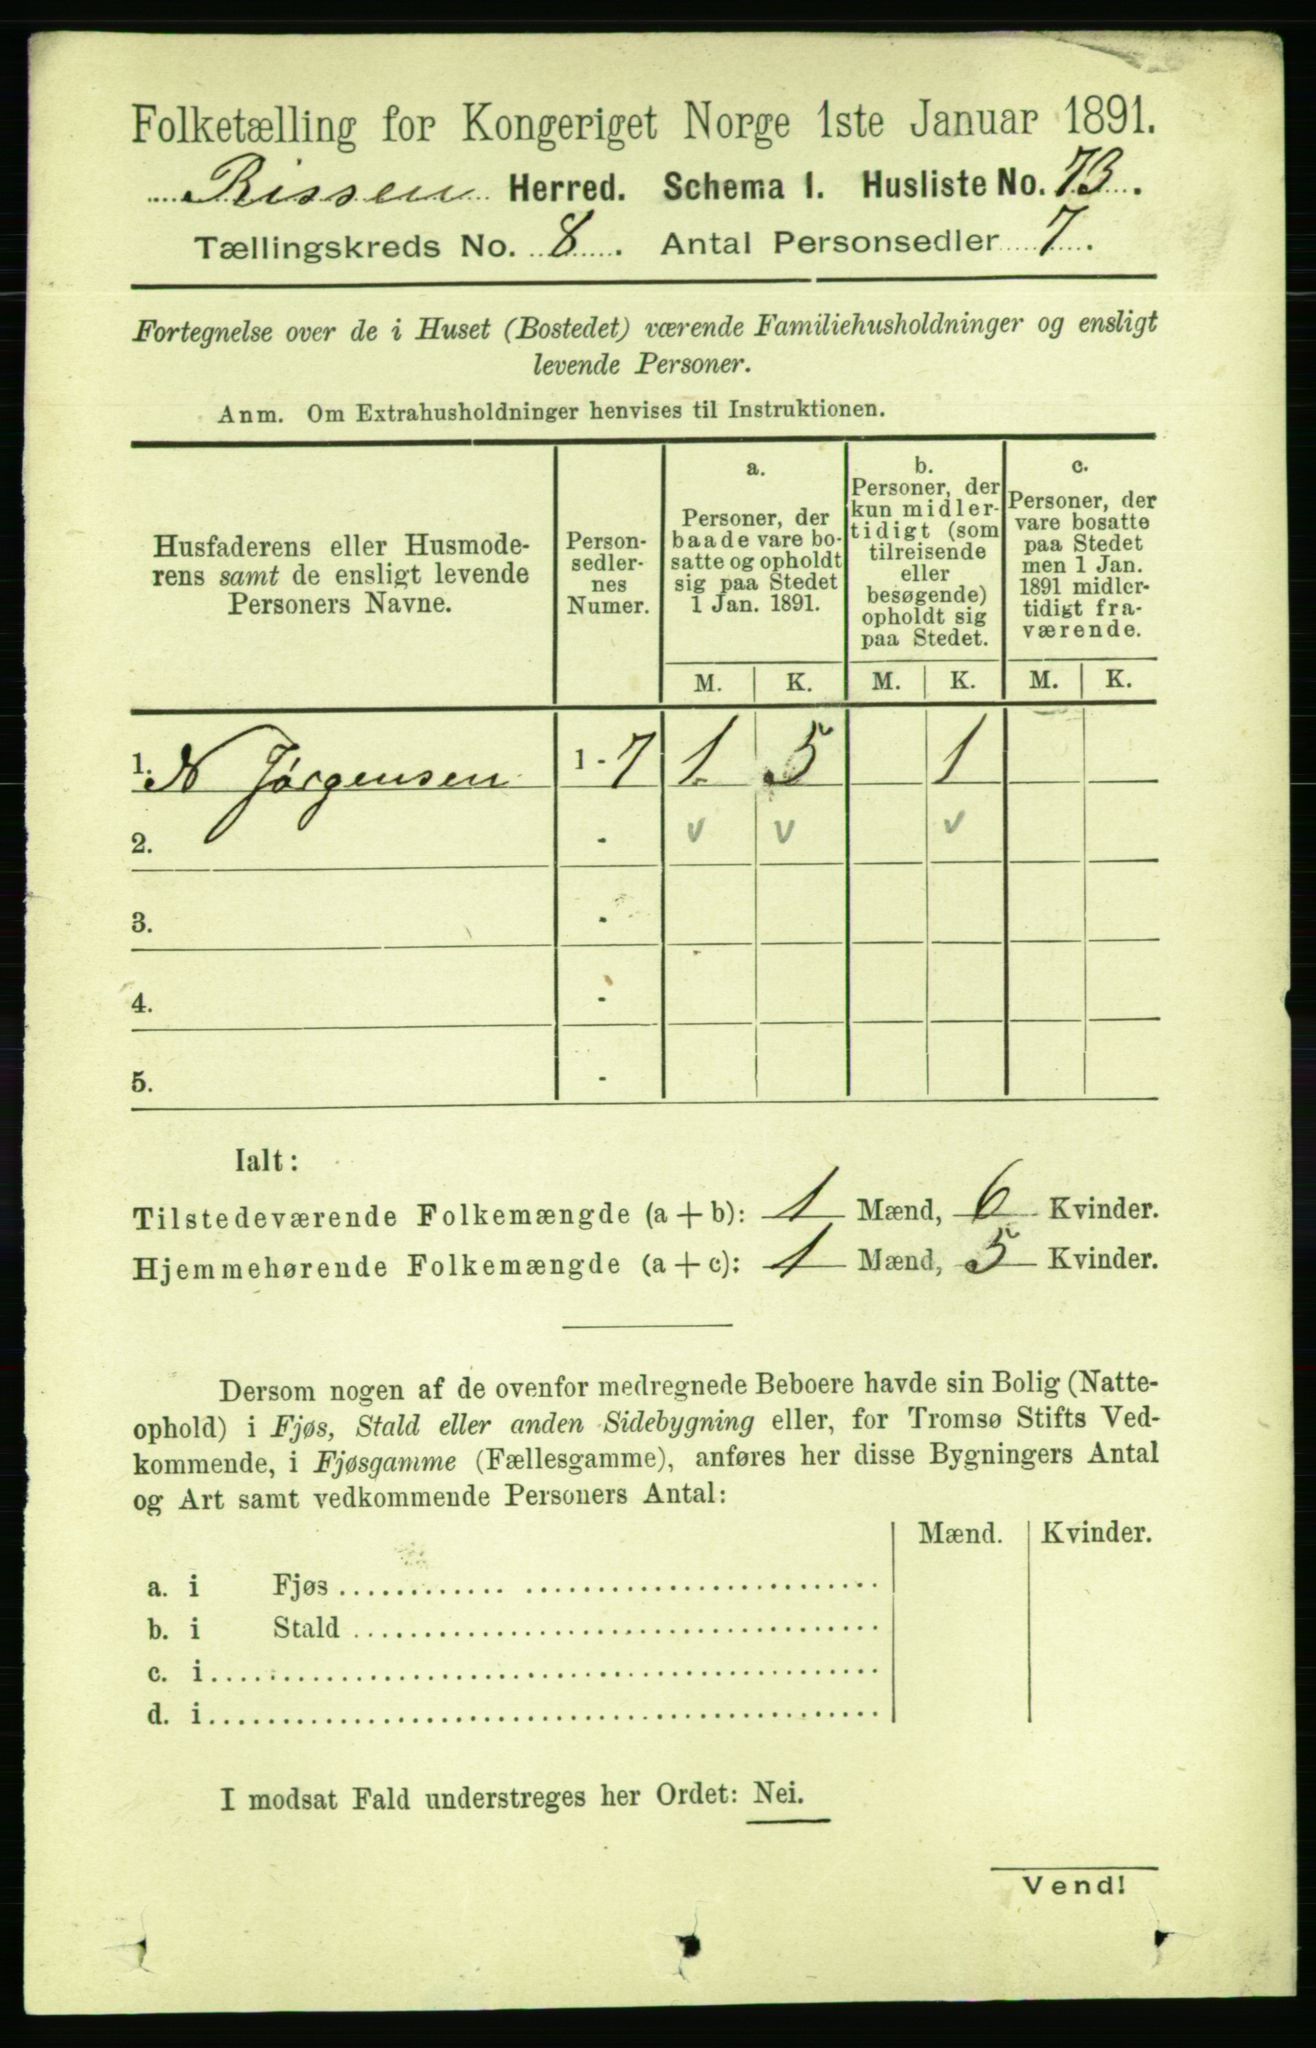 Folketælling for Kongeriget Norge 1ste Januar 1891.
Rissen Herred. Schema 1. Husliste No. 73.
Tællingskreds No. 8. Antal Personsedler 7.
Fortegnelse over de i Huset (Bostedet) værende Familiehusholdninger og ensligt
levende Personer.
Anm. Om Extrahusholdninger henvises til Instruktionen.
Husfaderens eller Husmode-
rens samt de ensligt levende
Personers Navne.
Person-
sedler-
nes
Numer.
a.
Personer, der
baade vare bo-
satte og opholdt
sig paa Stedet
1 Jan. 1891.
b.
Personer, der
kun midler-
tidigt (som
tilreisende
eller
besøgende)
opholdt sig
paa Stedet.
c.
Personer, der
vare bosatte
paa Stedet
men 1 Jan.
1891 midler-
tidigt fra-
værende.
M. K. M. K. M. K.
1. N Jørgensen 1 - 7 1 5 1
2. - v v v
3. -
4. -
5. -
Ialt:
Tilstedeværende Folkemængde (a + b): 1 Mænd, 6 Kvinder.
Hjemmehørende Folkemængde (a + c): 1 Mænd, 5 Kvinder.
Dersom nogen af de ovenfor medregnede Beboere havde sin Bolig (Natte-
ophold) i Fjøs, Stald eller anden Sidebygning eller, for Tromsø Stifts Ved-
kommende, i Fjøsgamme (Fællesgamme), anføres her disse Bygningers Antal
og Art samt vedkommende Personers Antal:
Mænd. Kvinder.
a. i Fjøs
b. i Stald
c. i
d. i
I modsat Fald understreges her Ordet: Nei.
Vend!